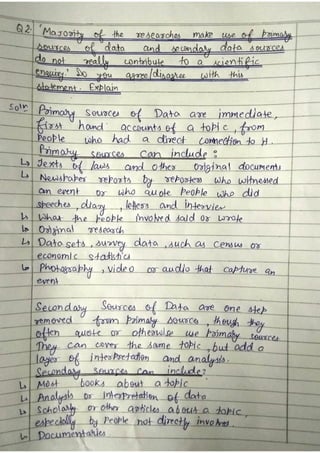 Q2. 'Majority of the researches make use of primary
sources of data and secondary data sources
do not really contribute to a scientific
enquiry.' Do you agree/disagree with this
statement. Explain
Soln Primary Sources of Data are immediate,
first hand accounts of a topic, from
People who had a direct connection to it.
Primary sources can include:
↳ Texts of laws and other original documents
↳ Newspaper reports by reporters who witnessed
an event or who quote people who did
↳ speeches, diary, letters and Interview
↳ What the people involved said or wrote
↳ Original research
↳ Data sets, survey data, such as census or
economic statistics
↳ Photography, video or audio that capture an
event
Secondary Sources of Data are one step
removed from primary source, though they
often quote or otherwise use primary sources
They can cover the same topic, but add a
layer of interpretation and analysis.
Secondary sources can include:
↳ Most books about a topic
↳ Analysis or Interpretation of data
↳ Scholarly or other articles about a topic,
especially by people not directly involves.
↳ Documentaries